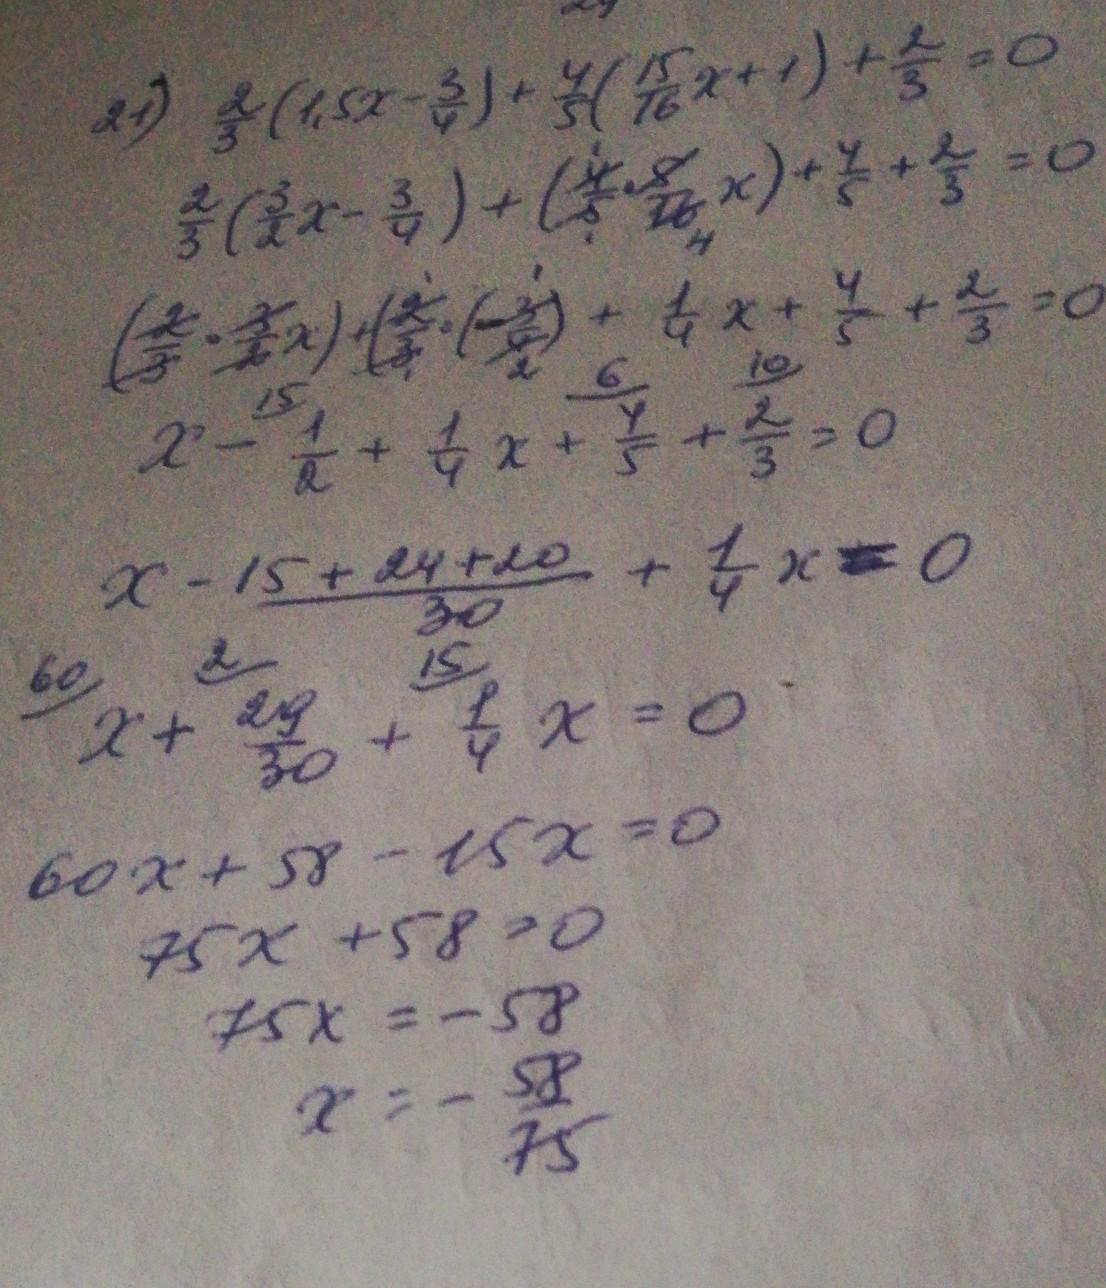 21) 2/3 (1,5x - 3/4) + 4/5 (15/16 x + 1) + 2/3 = 0
2/3 (3/2 x - 3/4) + (4/5 · 5/16 x) + 4/5 + 2/3 = 0
(2/3 · 3/2 x) + (2/3 · (-3/4)) + 1/4 x + 4/5 + 2/3 = 0
15 6 10
x - 1/2 + 1/4 x + 4/5 + 2/3 = 0
x - 15 + 24 + 20 / 30 + 1/4 x = 0
60 2 15
x + 29/30 + 1/4 x = 0
60x + 58 - 15x = 0
75x + 58 = 0
75x = -58
x = - 58/75